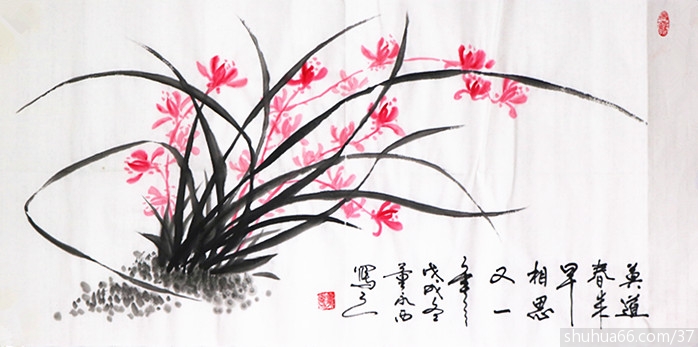 莫道
春来
早
相思
又一
年
戊戌冬
董永西
寫之
shuhua66.com/37